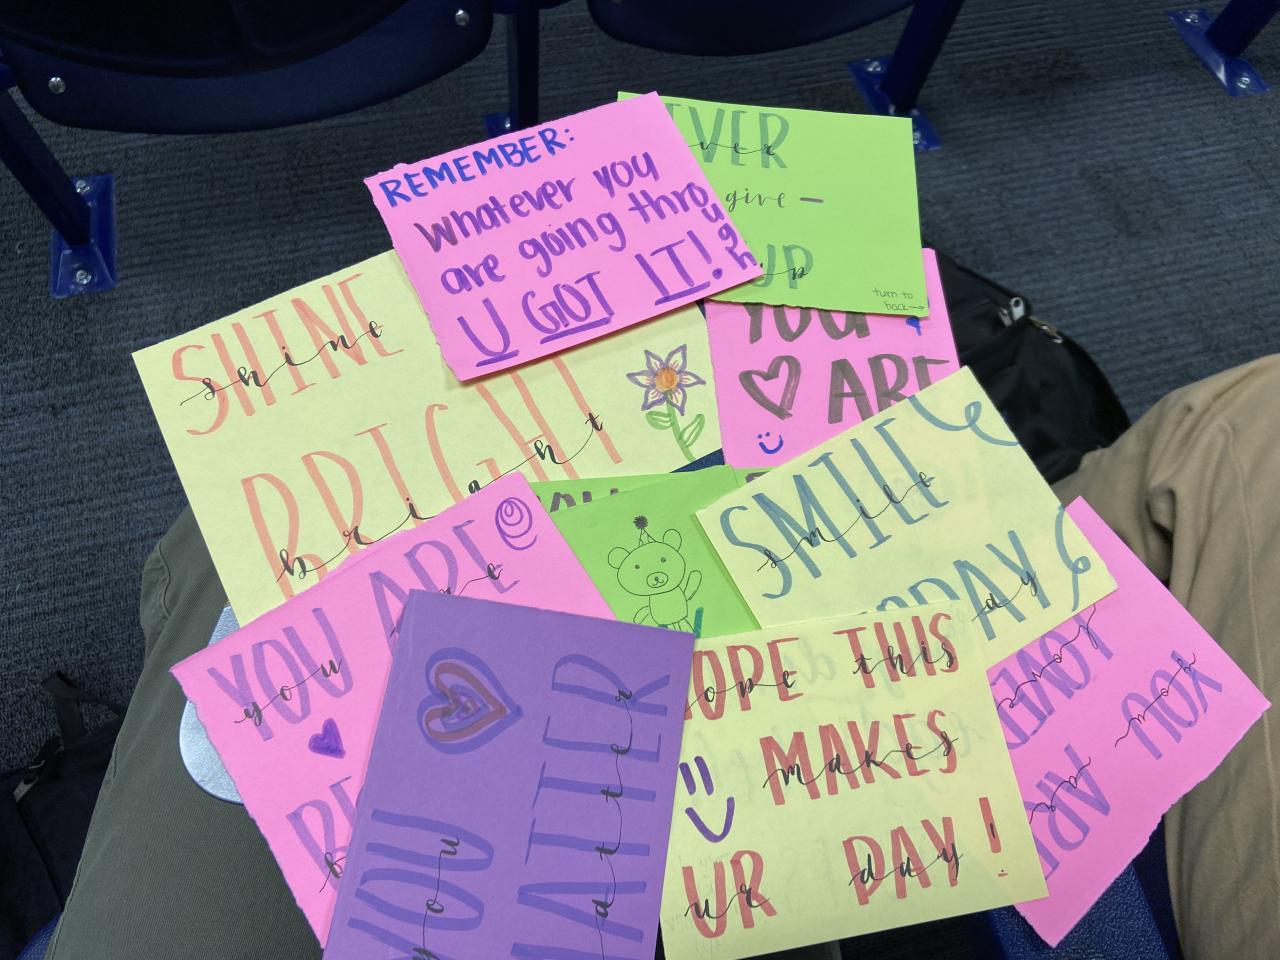 REMEMBER:
Whatever you
are going through
U GOT IT!
EVER
ever
give —
UP
up
turn to
back→
SHINE
shine
BRIGHT
bright
YOU
ARE
SMILE
smile
TODAY
ay
YOU ARE
you are
YOU
you
MATTER
matter
HOPE THIS
hope this
MAKES
makes
UR DAY!
ur day
YOU
you
ARE
are
LOVED
loved